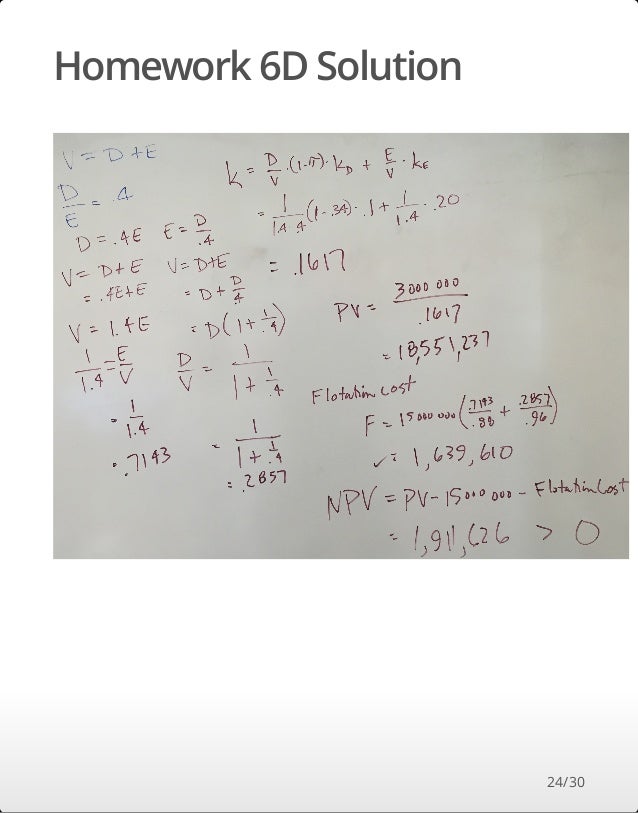 Homework 6D Solution
V = D + E
D/E = .4
D = .4E E = D/.4
V = D + E V = D + E
= .4E + E = D + D/.4
V = 1.4E = D(1 + 1/.4)
1/1.4 = E/V D/V = 1/(1 + 1/.4)
= 1/1.4 = 1/(1 + 1/.4)
= .7143 = .2857
k = D/V · (1-π) · kD + E/V · kE
= 1/1.4 .4 (1-.34) · .1 + 1/1.4 · .20
= .1617
PV = 3000 000/.1617
= 18,551,237
Flotation cost
F = 15 000 000 (.7143/.88 + .2857/.96)
✓= 1,639,610
NPV = PV - 15 000 000 - Flotation Cost
= 1,911,626 > 0
24/30